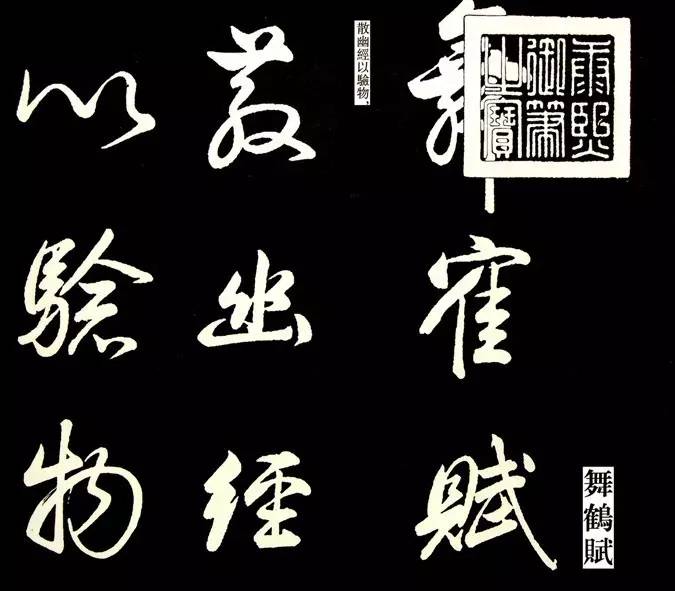 康熙
御筆
之寶
舞寉賦
舞鶴賦
散幽經以驗物、
散幽經
以驗物